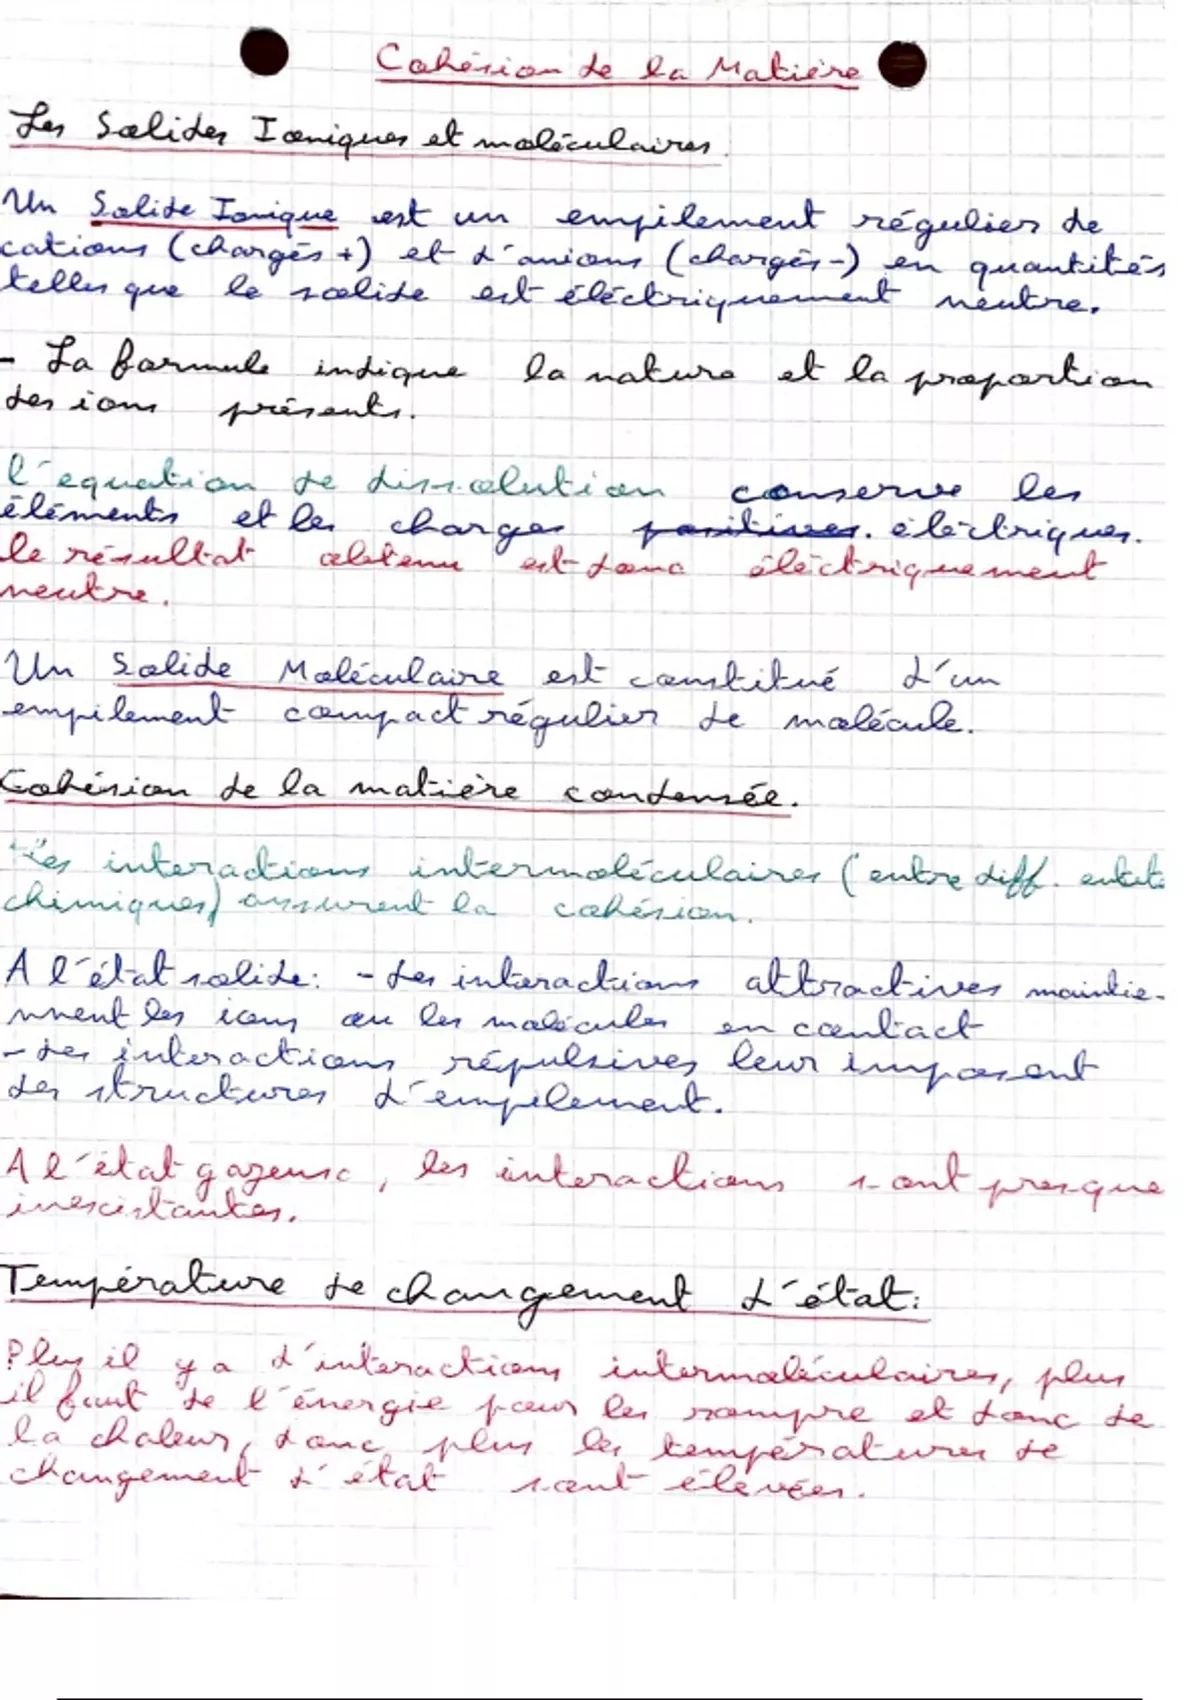 Cohésion de la Matière
Les Solides Ioniques et moléculaires.
Un Solide Ionique est un empilement régulier de
cations (chargés +) et d'anions (chargés -) en quantités
telles que le solide est éléctriquement neutre.
- La formule indique la nature et la proportion
des ions présents.
l'équation de dissolution conserve les
éléments et les charges positives. éléctriques.
le résultat obtenu est donc éléctriquement
neutre.
Un Solide Moléculaire est constitué d'un
empilement compact régulier de molécule.
Cohésion de la matière condensée.
Les interactions intermoléculaires (entre diff. entités
chimiques) assurent la cohésion.
A l'état solide: - Les interactions attractives maintie-
nnent les ions ou les molécules en contact
- Les interactions répulsives leur imposent
des structures d'empilement.
A l'état gazeuse, les interactions sont presque
inexistantes.
Température de changement d'état:
Plus il y a d'interactions intermoléculaires, plus
il faut de l'énergie pour les rompre et donc de
la chaleur, donc plus les températures de
changement d'état sont élevées.